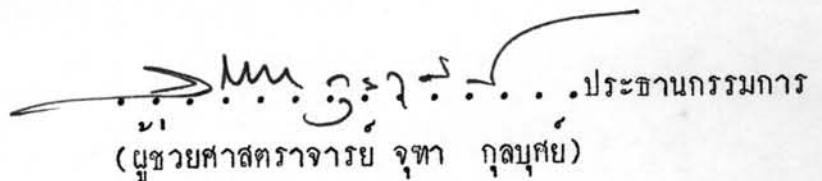 . . . . . . . . . . . . . . ประธานกรรมการ
(ผู้ช่วยศาสตราจารย์ จุฑา กุลบุศย์)